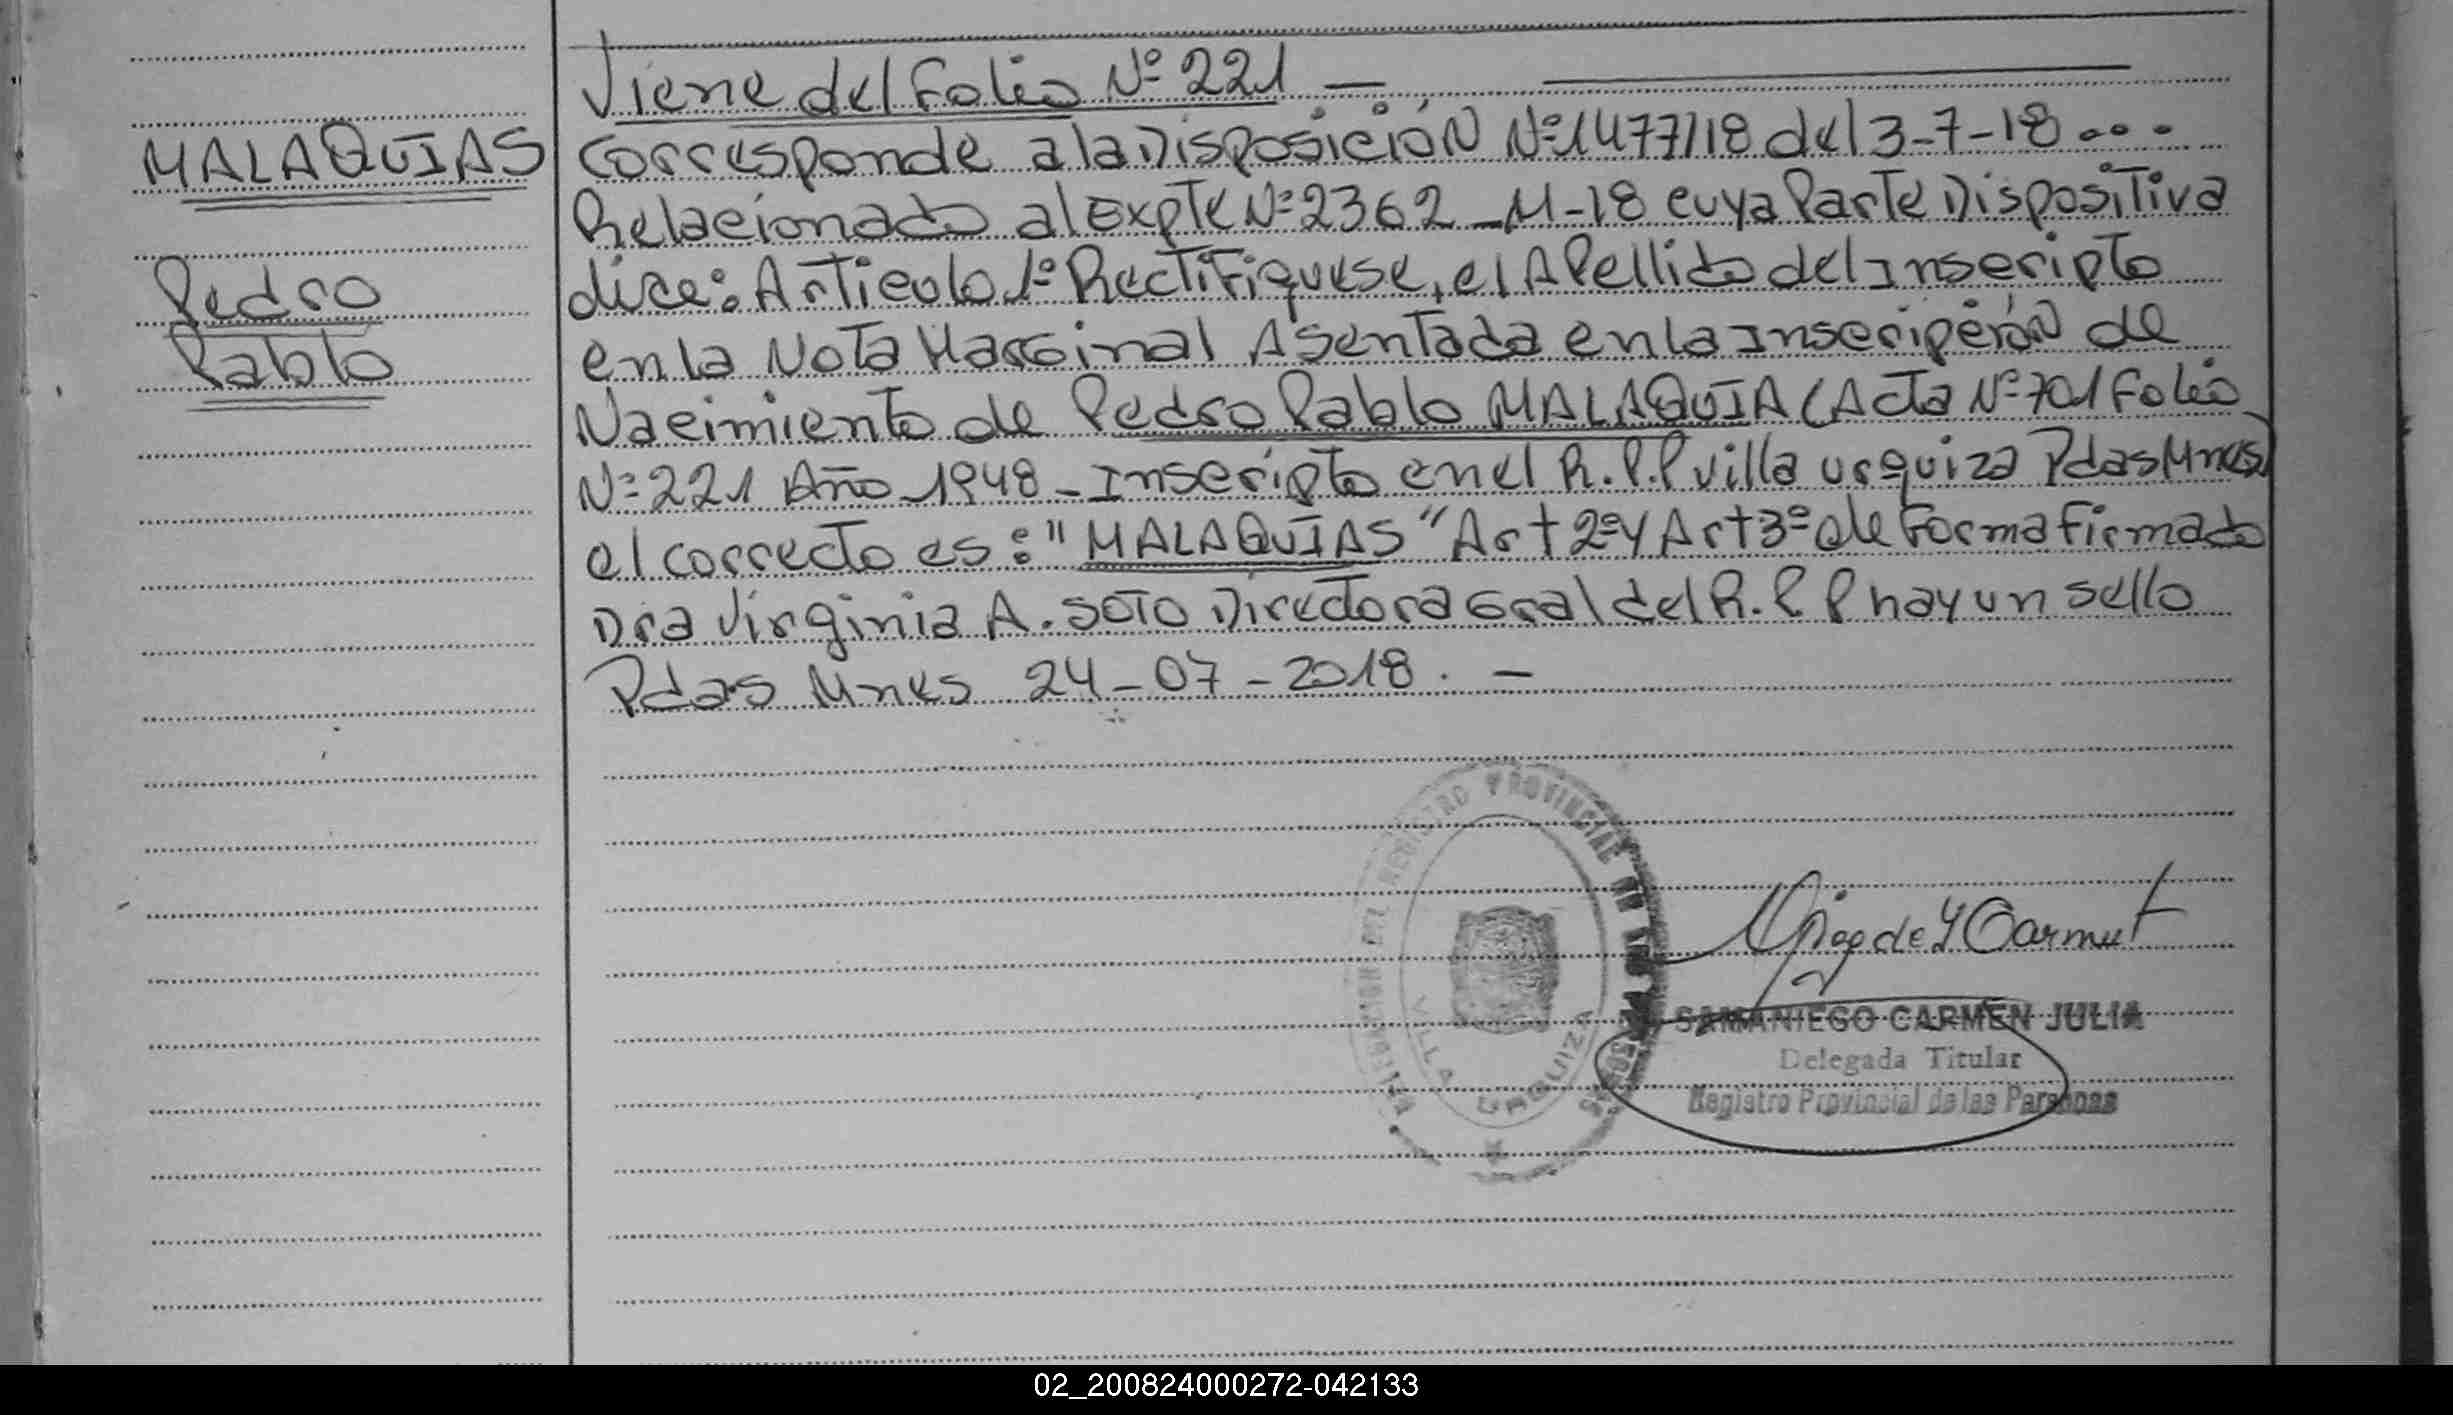 Viene del Folio Nº 221 —
MALAQUIAS
Pedro
Pablo
Corresponde a la Disposición Nº 1477/18 del 3-7-18...
Relacionado al Expte Nº 2362-M-18 cuya Parte Dispositiva
dice: Articulo 1º Rectifiquese, el Apellido del Inscripto
en la Nota Marginal Asentada en la Inscripción de
Nacimiento de Pedro Pablo MALAQUIA (Acta Nº 701 Folio
Nº 221 Año 1948 - Inscripto en el R.P.P Villa Urquiza Pdas Mnes)
el correcto es: "MALAQUIAS" Art 2º y Art 3º de Forma Firmado
Dra Virginia A. SOTO Directora Gral del R.P.P hay un sello
Pdas Mnes 24-07-2018. —
DELEGACION DEL REGISTRO PROVINCIAL DE LAS PERSONAS
VILLA URQUIZA
SAMANIEGO CARMEN JULIA
Delegada Titular
Registro Provincial de las Personas
02_200824000272-042133